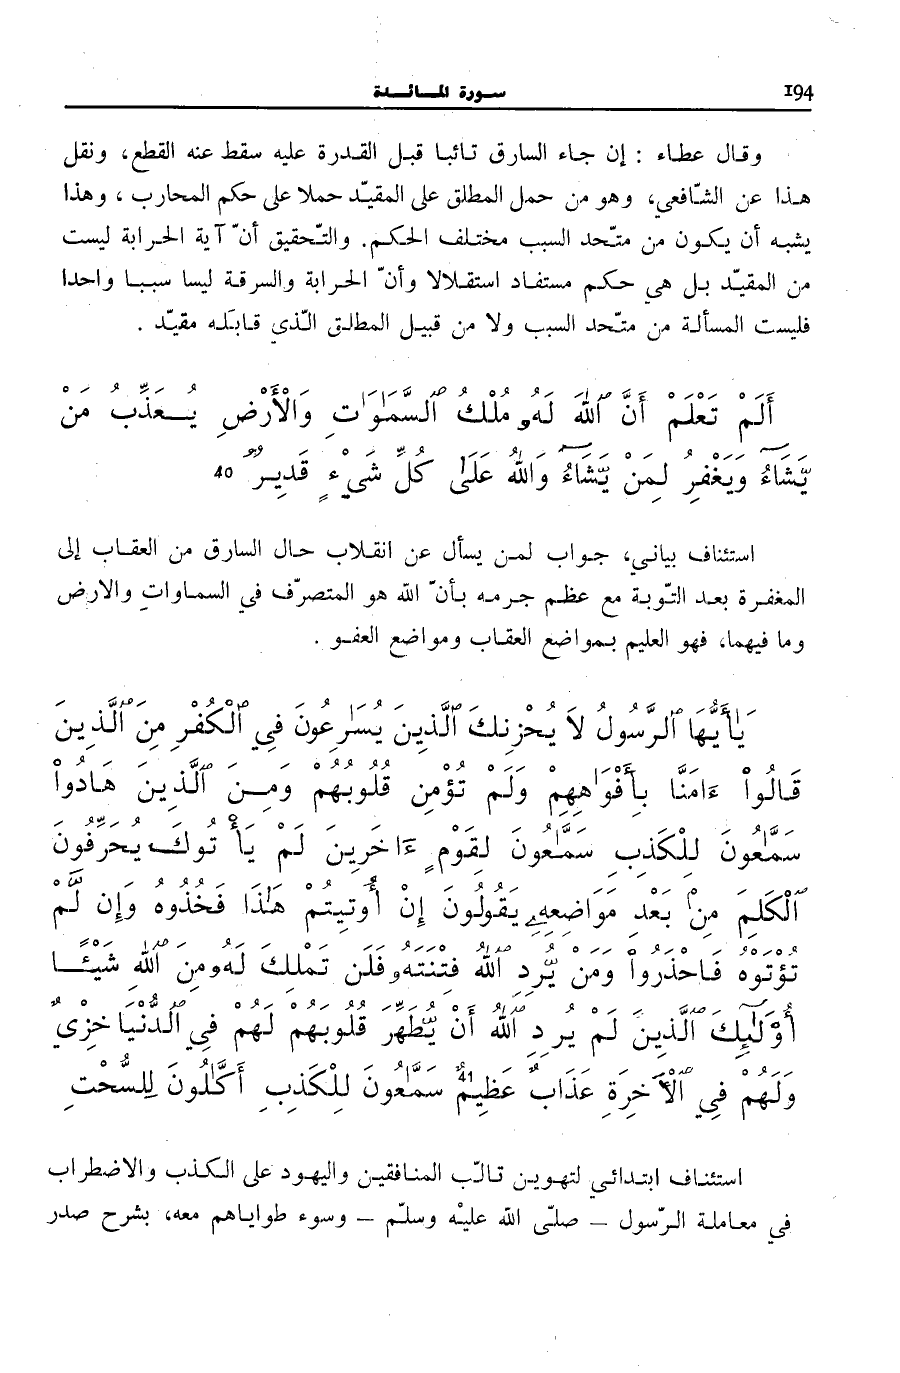 194
سورة المائدة
وقال عطاء : إن جاء السارق تائبا قبل القدرة عليه سقط عنه القطع، ونقل
هذا عن الشّافعي، وهو من حمل المطلق على المقيّد حملا على حكم المحارب ، وهذا
يشبه أن يكون من متّحد السبب مختلف الحكم. والتّحقيق أنّ آية الحرابة ليست
من المقيّد بل هي حكم مستفاد استقلالا وأنّ الحرابة والسرقة ليسا سببا واحدا
فليست المسألة من متّحد السبب ولا من قبيل المطلق الّذي قابله مقيّد .
أَلَمْ تَعْلَمْ أَنَّ ٱللَّهَ لَهُۥ مُلْكُ ٱلسَّمَٰوَٰتِ وَالْأَرْضِ يُعَذِّبُ مَنْ
يَّشَآءُ وَيَغْفِرُ لِمَنْ يَّشَآءُ وَٱللَّهُ عَلَىٰ كُلِّ شَيْءٍ قَدِيرٌ 40
استئناف بياني، جواب لمن يسأل عن انقلاب حال السارق من العقاب إلى
المغفرة بعد التّوبة مع عظم جرمه بأنّ الله هو المتصرّف في السماوات والارض
وما فيهما، فهو العليم بمواضع العقاب ومواضع العفو .
يَٰأَيُّهَا ٱلرَّسُولُ لَا يُحْزِنكَ ٱلَّذِينَ يُسَٰرِعُونَ فِي ٱلْكُفْرِ مِنَ ٱلَّذِينَ
قَالُواْ ءَامَنَّا بِأَفْوَاهِهِمْ وَلَمْ تُؤْمِن قُلُوبُهُمْ وَمِنَ ٱلَّذِينَ هَادُواْ
سَمَّٰعُونَ لِلْكَذِبِ سَمَّٰعُونَ لِقَوْمٍ ءَاخَرِينَ لَمْ يَأْتُوكَ يُحَرِّفُونَ
ٱلْكَلِمَ مِنۢ بَعْدِ مَوَاضِعِهِۦ يَقُولُونَ إِنْ أُوتِيتُمْ هَٰذَا فَخُذُوهُ وَإِن لَّمْ
تُؤْتَوْهُ فَاحْذَرُواْ وَمَنْ يُّرِدِ ٱللَّهُ فِتْنَتَهُۥ فَلَن تَمْلِكَ لَهُۥ مِنَ ٱللَّهِ شَيْـًٔا
أُوْلَٰٓئِكَ ٱلَّذِينَ لَمْ يُرِدِ ٱللَّهُ أَنْ يُّطَهِّرَ قُلُوبَهُمْ لَهُمْ فِي ٱلدُّنْيَا خِزْيٌ
وَلَهُمْ فِي ٱلْأَخِرَةِ عَذَابٌ عَظِيمٌ 41 سَمَّٰعُونَ لِلْكَذِبِ أَكَّٰلُونَ لِلسُّحْتِ
استئناف ابتدائي لتهوين تألّب المنافقين واليهود على الكذب والاضطراب
في معاملة الرّسول – صلّى الله عليْه وسلّم – وسوء طواياهم معه، بشرح صدر